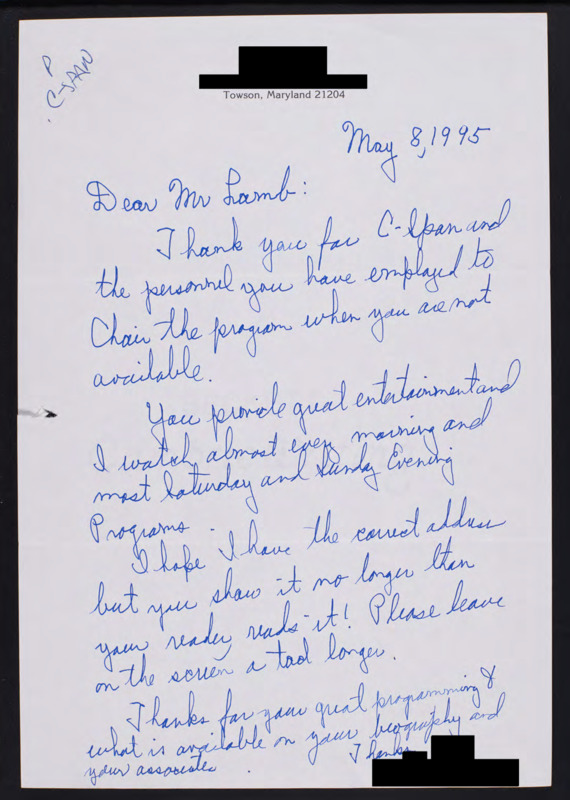 P
C-SPAN
Towson, Maryland 21204
May 8, 1995
Dear Mr Lamb:
Thank you for C-Span and
the personnel you have employed to
Chair the program when you are not
available.
You provide great entertainment and
I watch almost every morning and
most Saturday and Sunday Evening
Programs.
I hope I have the correct address
but you show it no longer than
your reader reads it! Please leave
on the screen a tad longer.
Thanks for your great programming &
what is available on your biography and
your associates.
Thanks